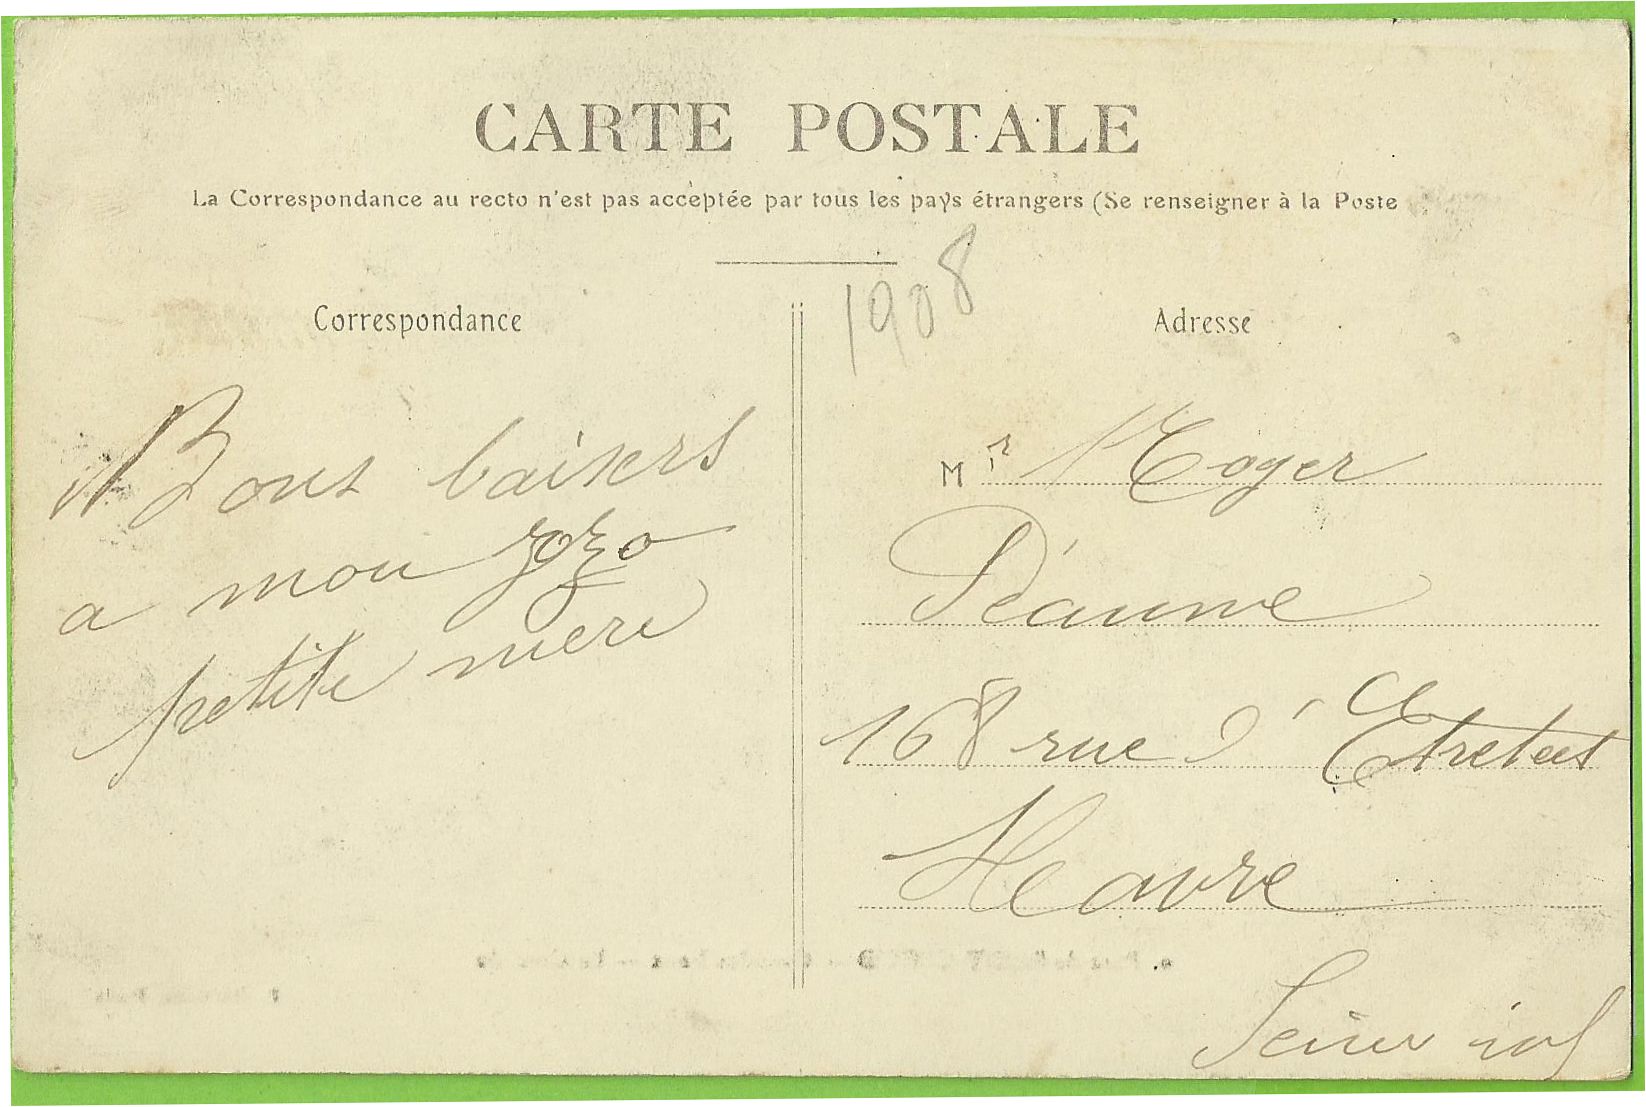 CARTE POSTALE
La Correspondance au recto n'est pas acceptée par tous les pays étrangers (Se renseigner à la Poste
1908
Correspondance
Bons baisers
a mon zozo
petite mere
Adresse
Mr Roger
Déaunne
168 rue d'Etretat
Havre
Seine inf